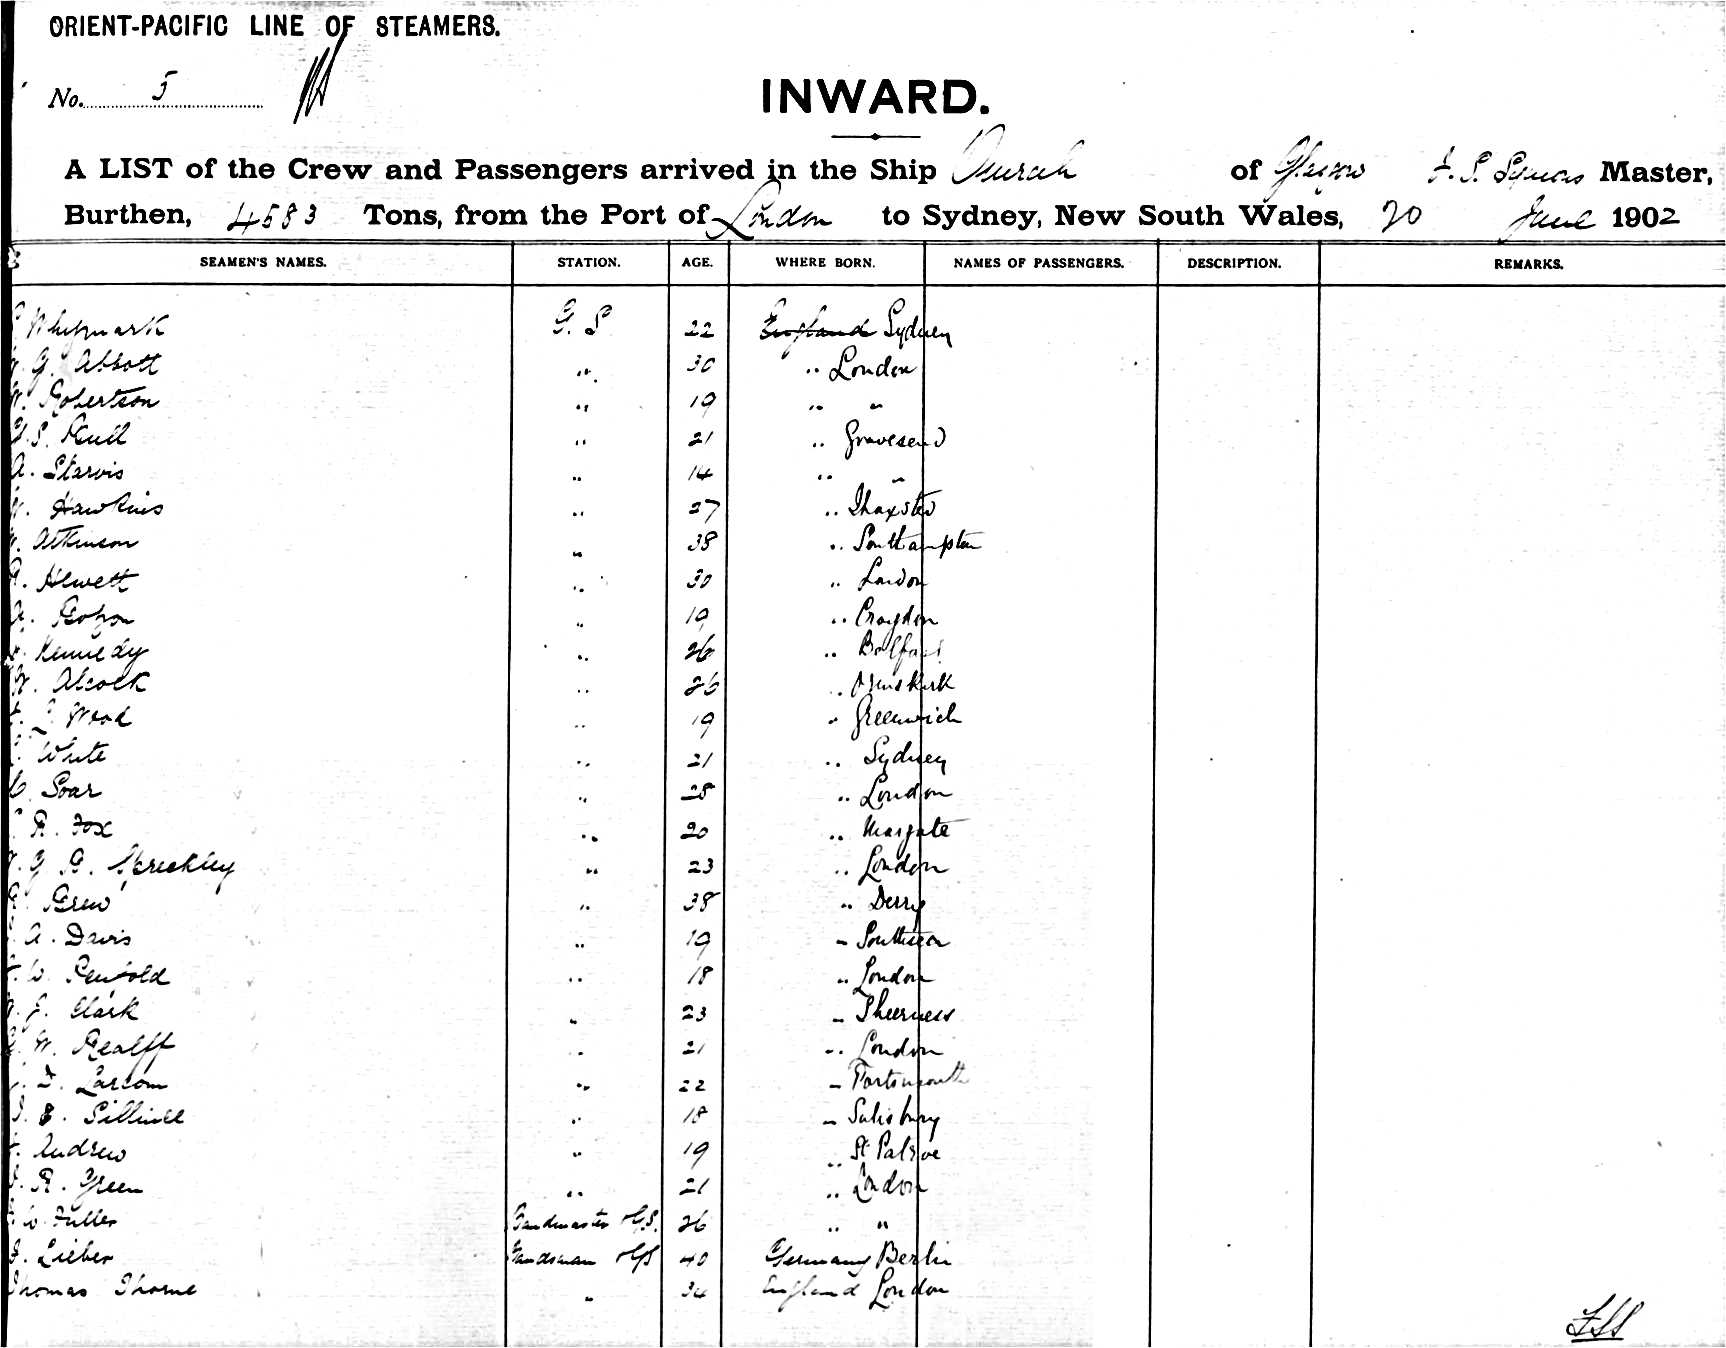 ORIENT-PACIFIC LINE OF STEAMERS.
No. 5
INWARD.
A LIST of the Crew and Passengers arrived in the Ship of Glasgow Master,
Burthen, 4583 Tons, from the Port of London to Sydney, New South Wales, 20 June 1902
SEAMEN'S NAMES. STATION. AGE. WHERE BORN. NAMES OF PASSENGERS. DESCRIPTION. REMARKS.
Whypmark G. S 22 England Sydney
G. Abbott " 30 " London
W. Robertson " 19 " "
S. " 21 " Gravesend
A. Starvis " 14 " "
Hawkins " 27 " Thaxsted
Atkinson " 38 " Southampton
Hewett " 30 " London
" 19 " Croydon
Kennedy " 26 " Belfast
W. Alcock " 26 " Ormskirk
Wood " 19 " Greenwich
White " 21 " Sydney
Soar " 28 " London
R. Fox " 20 " Margate
G. " 23 " London
" 38 " Derry
A. Davis " 19 " Southsea
W. Penfold " 18 " London
J. Clark " 23 " Sheerness
W. Realff " 21 " London
D. Larcom " 22 " Portsmouth
" 18 " Salisbury
Andrew " 19 "
R. Green " 21 " London
W. Fuller Bandmaster & G.S. 26 " "
Lieber Bandsman & GS 40 Germany Berlin
Thomas Thorne " 34 England London